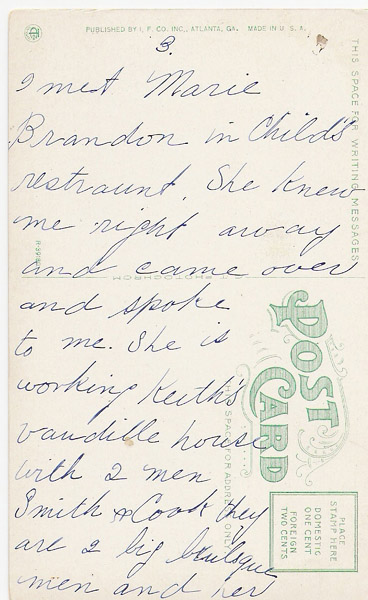 PUBLISHED BY I. F. CO. INC., ATLANTA, GA. MADE IN U. S. A.
3.
I met Marie
Brandon in Child's
restraunt. She knew
me right away
and came over
and spoke
to me. She is
working Keith's
vaudille house
with 2 men
Smith & Cook they
are 2 big bulsque
men and her
THIS SPACE FOR WRITING MESSAGES
POST CARD
THIS SPACE FOR ADDRESS ONLY
PLACE
STAMP HERE
DOMESTIC
ONE CENT
FOREIGN
TWO CENTS